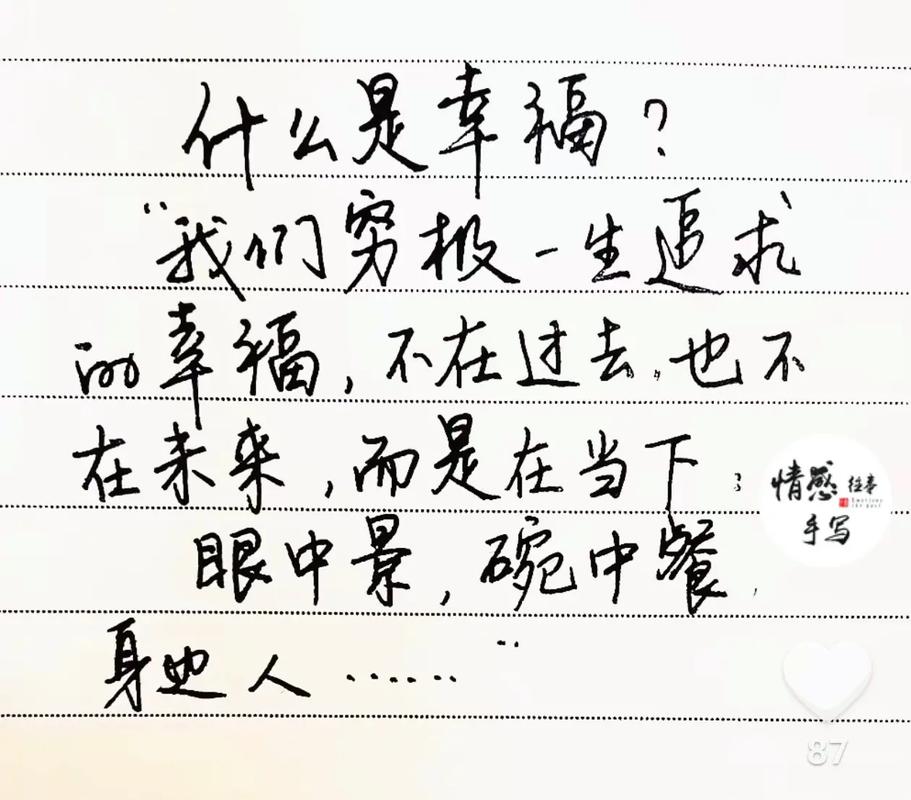 什么是幸福?
“我们穷极一生追求
的幸福,不在过去,也不
在未来,而是在当下;
眼中景,碗中餐,
身边人……”
情感往事
手写
87